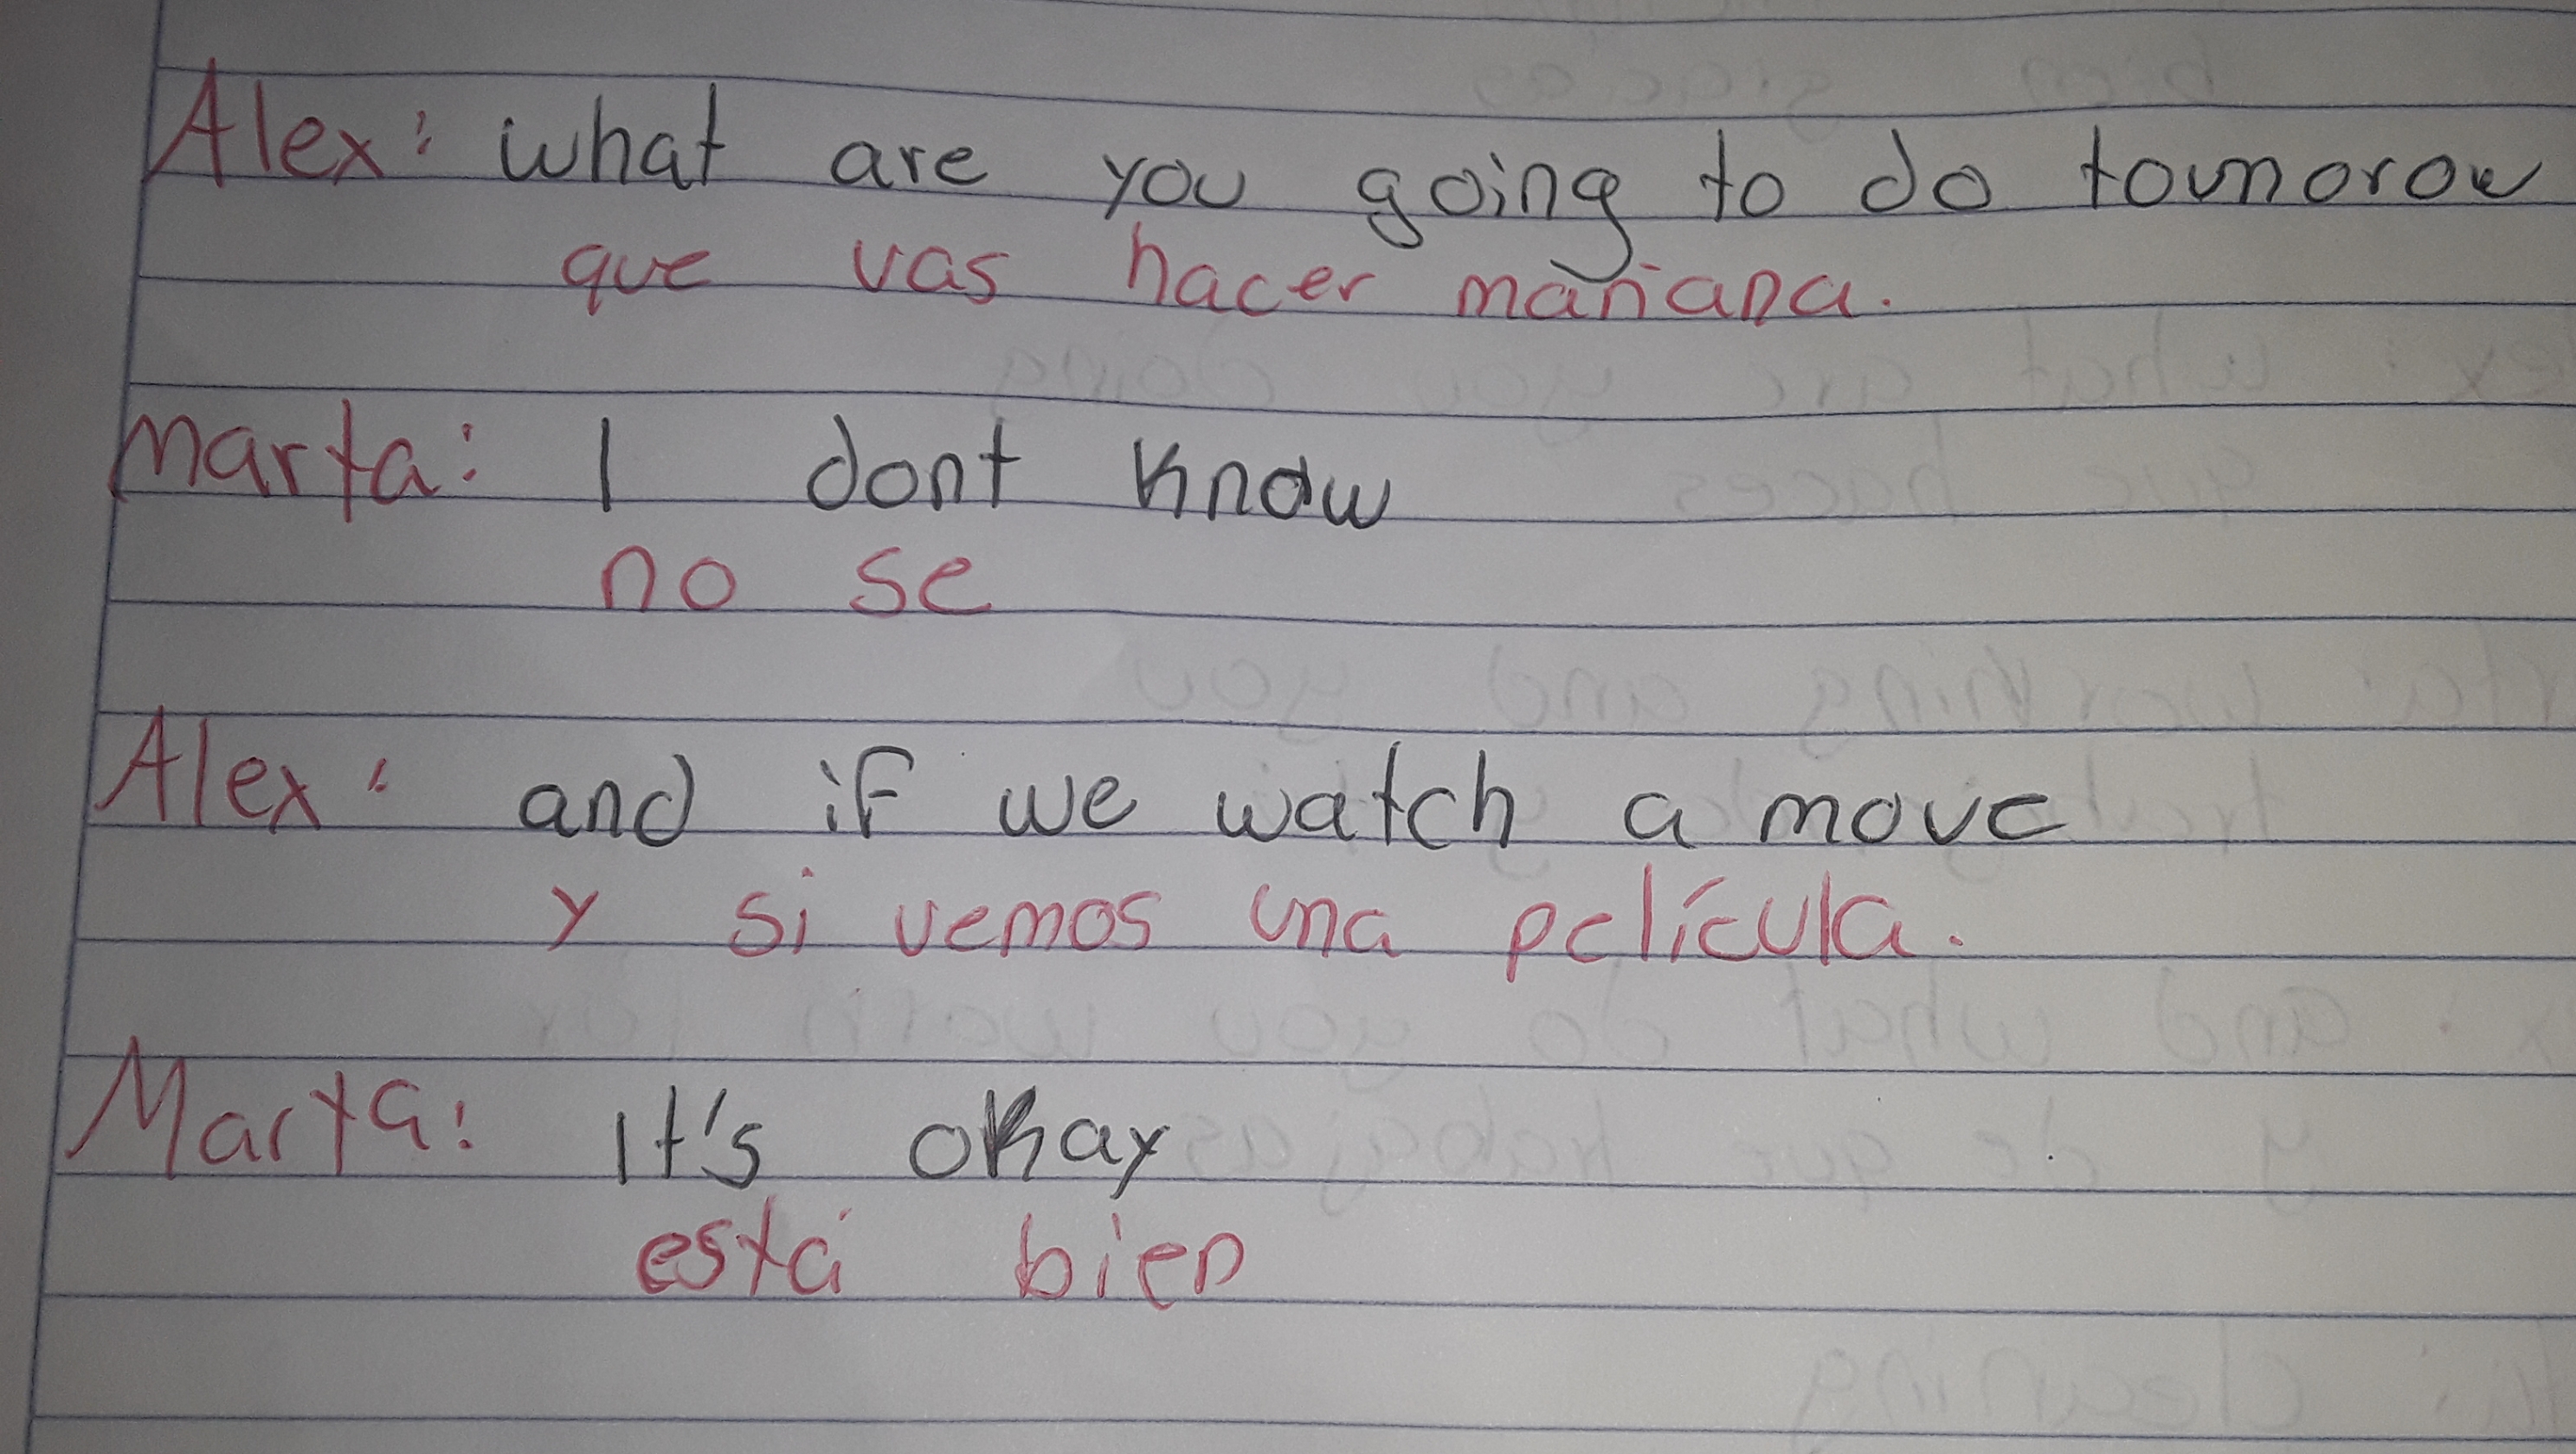 Alex: what are you going to do toumorow
que vas hacer mañana.
Marta: I dont know
no se
Alex: and if we watch a move
y si vemos una película.
Marta: it's okay
está bien